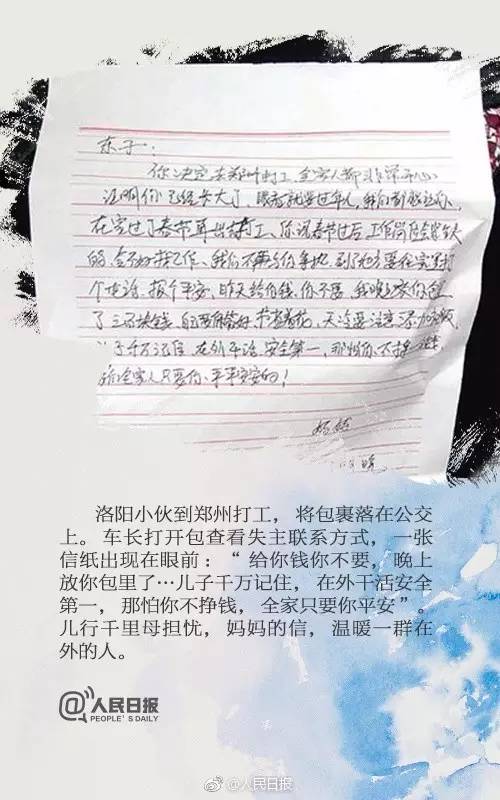 东子：
你决定去郑州打工，全家人都非常开心
证明你已经长大了，眼看就要过年，我们都劝你
在家过了春节再出去打工，你说春节过后工作岗位会
的，会不好找工作，我们不
个电话，报个平安，昨天给你钱，你不要，我晚上放你包
了三百块钱，自己要保管好，天冷要注意
儿子千万记住，在外干活，安全第一，那怕你不挣钱，
全家人只要你平平安安的！
妈妈
晚
洛阳小伙到郑州打工，将包裹落在公交
上。车长打开包查看失主联系方式，一张
信纸出现在眼前：“给你钱你不要，晚上
放你包里了…儿子千万记住，在外干活安全
第一，那怕你不挣钱，全家只要你平安”。
儿行千里母担忧，妈妈的信，温暖一群在
外的人。
@人民日报
PEOPLE'S DAILY
@人民日报